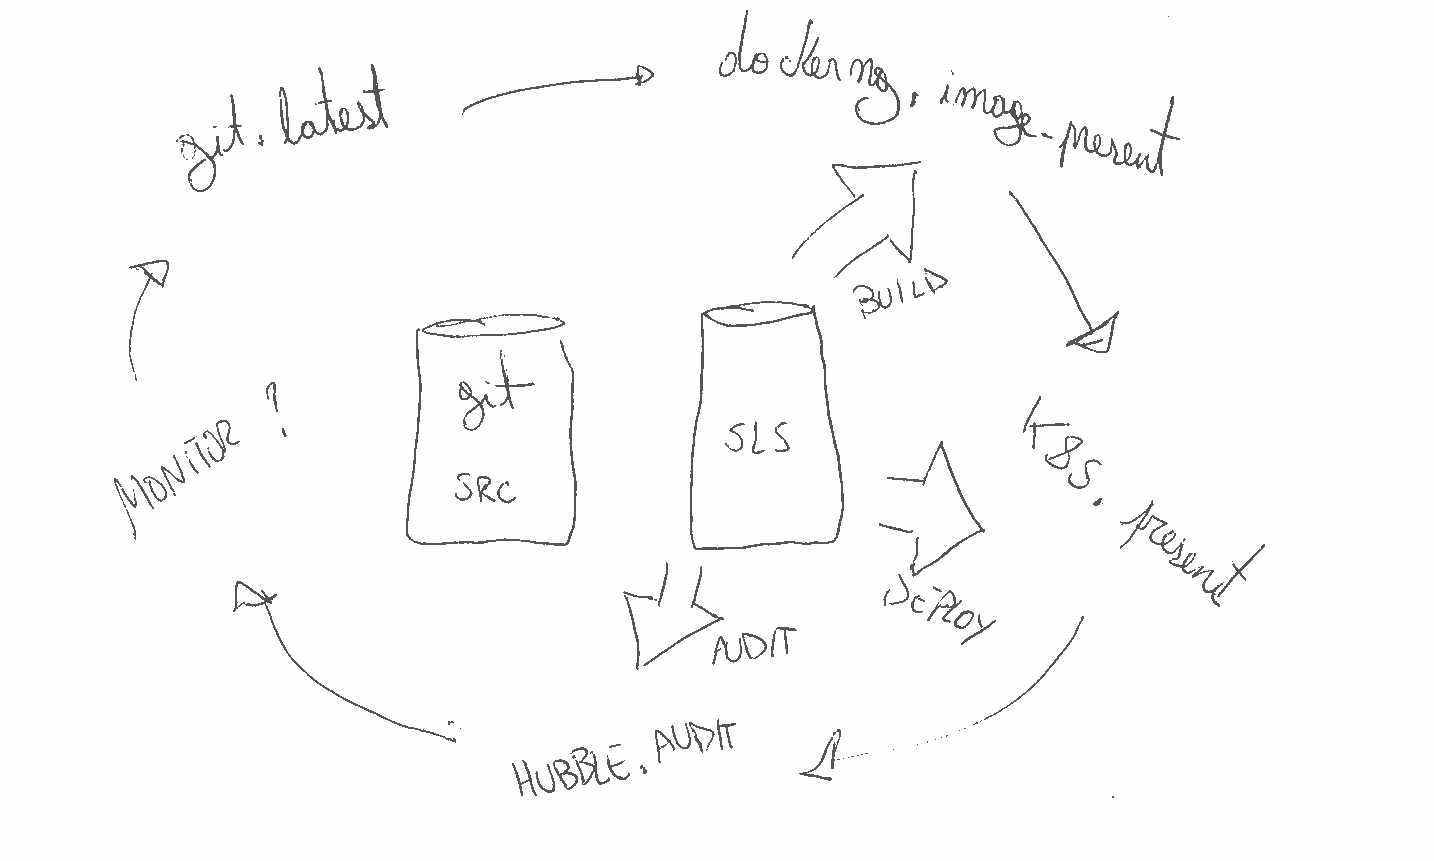 git.latest
dockerng.image-present
BUILD
git
SRC
SLS
MONITOR ?
K8S.present
DEPLOY
AUDIT
HUBBLE.AUDIT